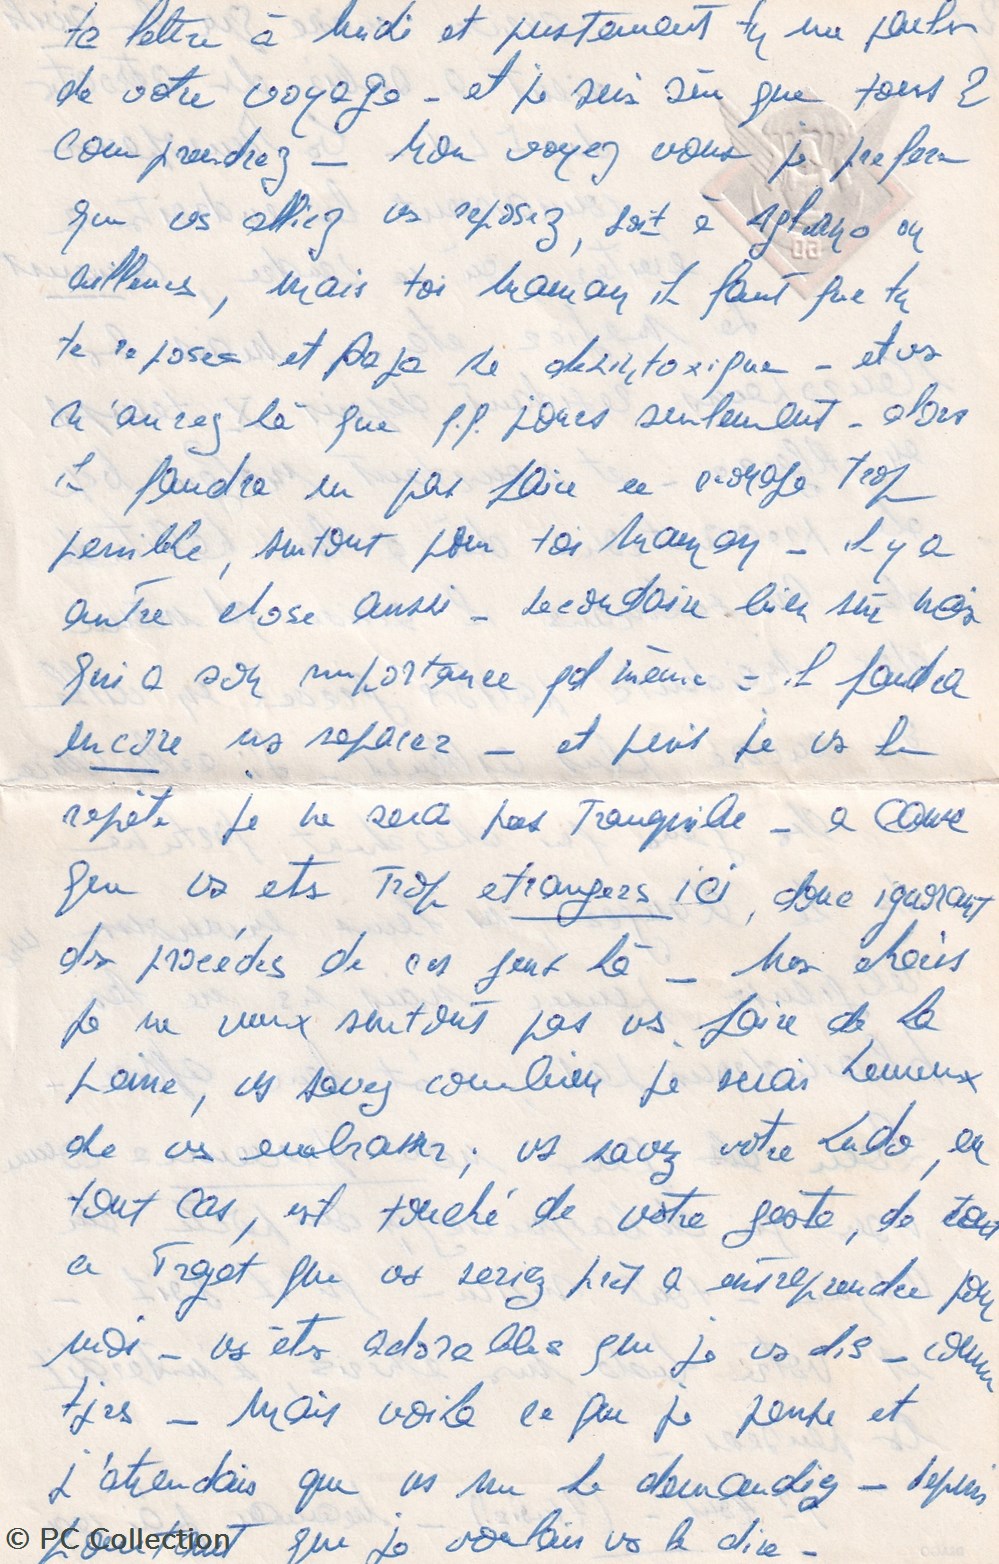 ta lettre à midi et justement tu me parles
de votre voyage - et je suis sûr que tous 2
comprendrez - Non voyez vous je prefere
que vs alliez vs reposez, soit à ou
ailleurs, mais toi maman il faut que tu
te reposes et Papa se desintoxique - et vs
n'aurez là que q.q. jours seulement - alors
il faudra ne pas faire ce voyage trop
penible, surtout pour toi maman - il y a
autre chose aussi - secondaire bien sûr mais
qui a son importance qd même - il faudra
encore vs separer - et puis je vs le
repète je ne serai pas tranquille - a cause
que vs etes trop etrangers ici, donc ignorant
des procédés de ces gens là - Mes chéris
je ne veux surtout pas vs faire de la
peine, vs savez combien je serai heureux
de vs embrasser ; vs savez votre Ludo, en
tout cas, est touché de votre geste, de tout
ce Trajet que vs seriez prêt a entreprendre pour
moi - vs êtes adorables que je vs dis - comme
tjrs - Mais voila ce que je pense et
j'attendais que vs me le demandiez - depuis
longtemps que je voulais vs le dire -
60
© PC Collection